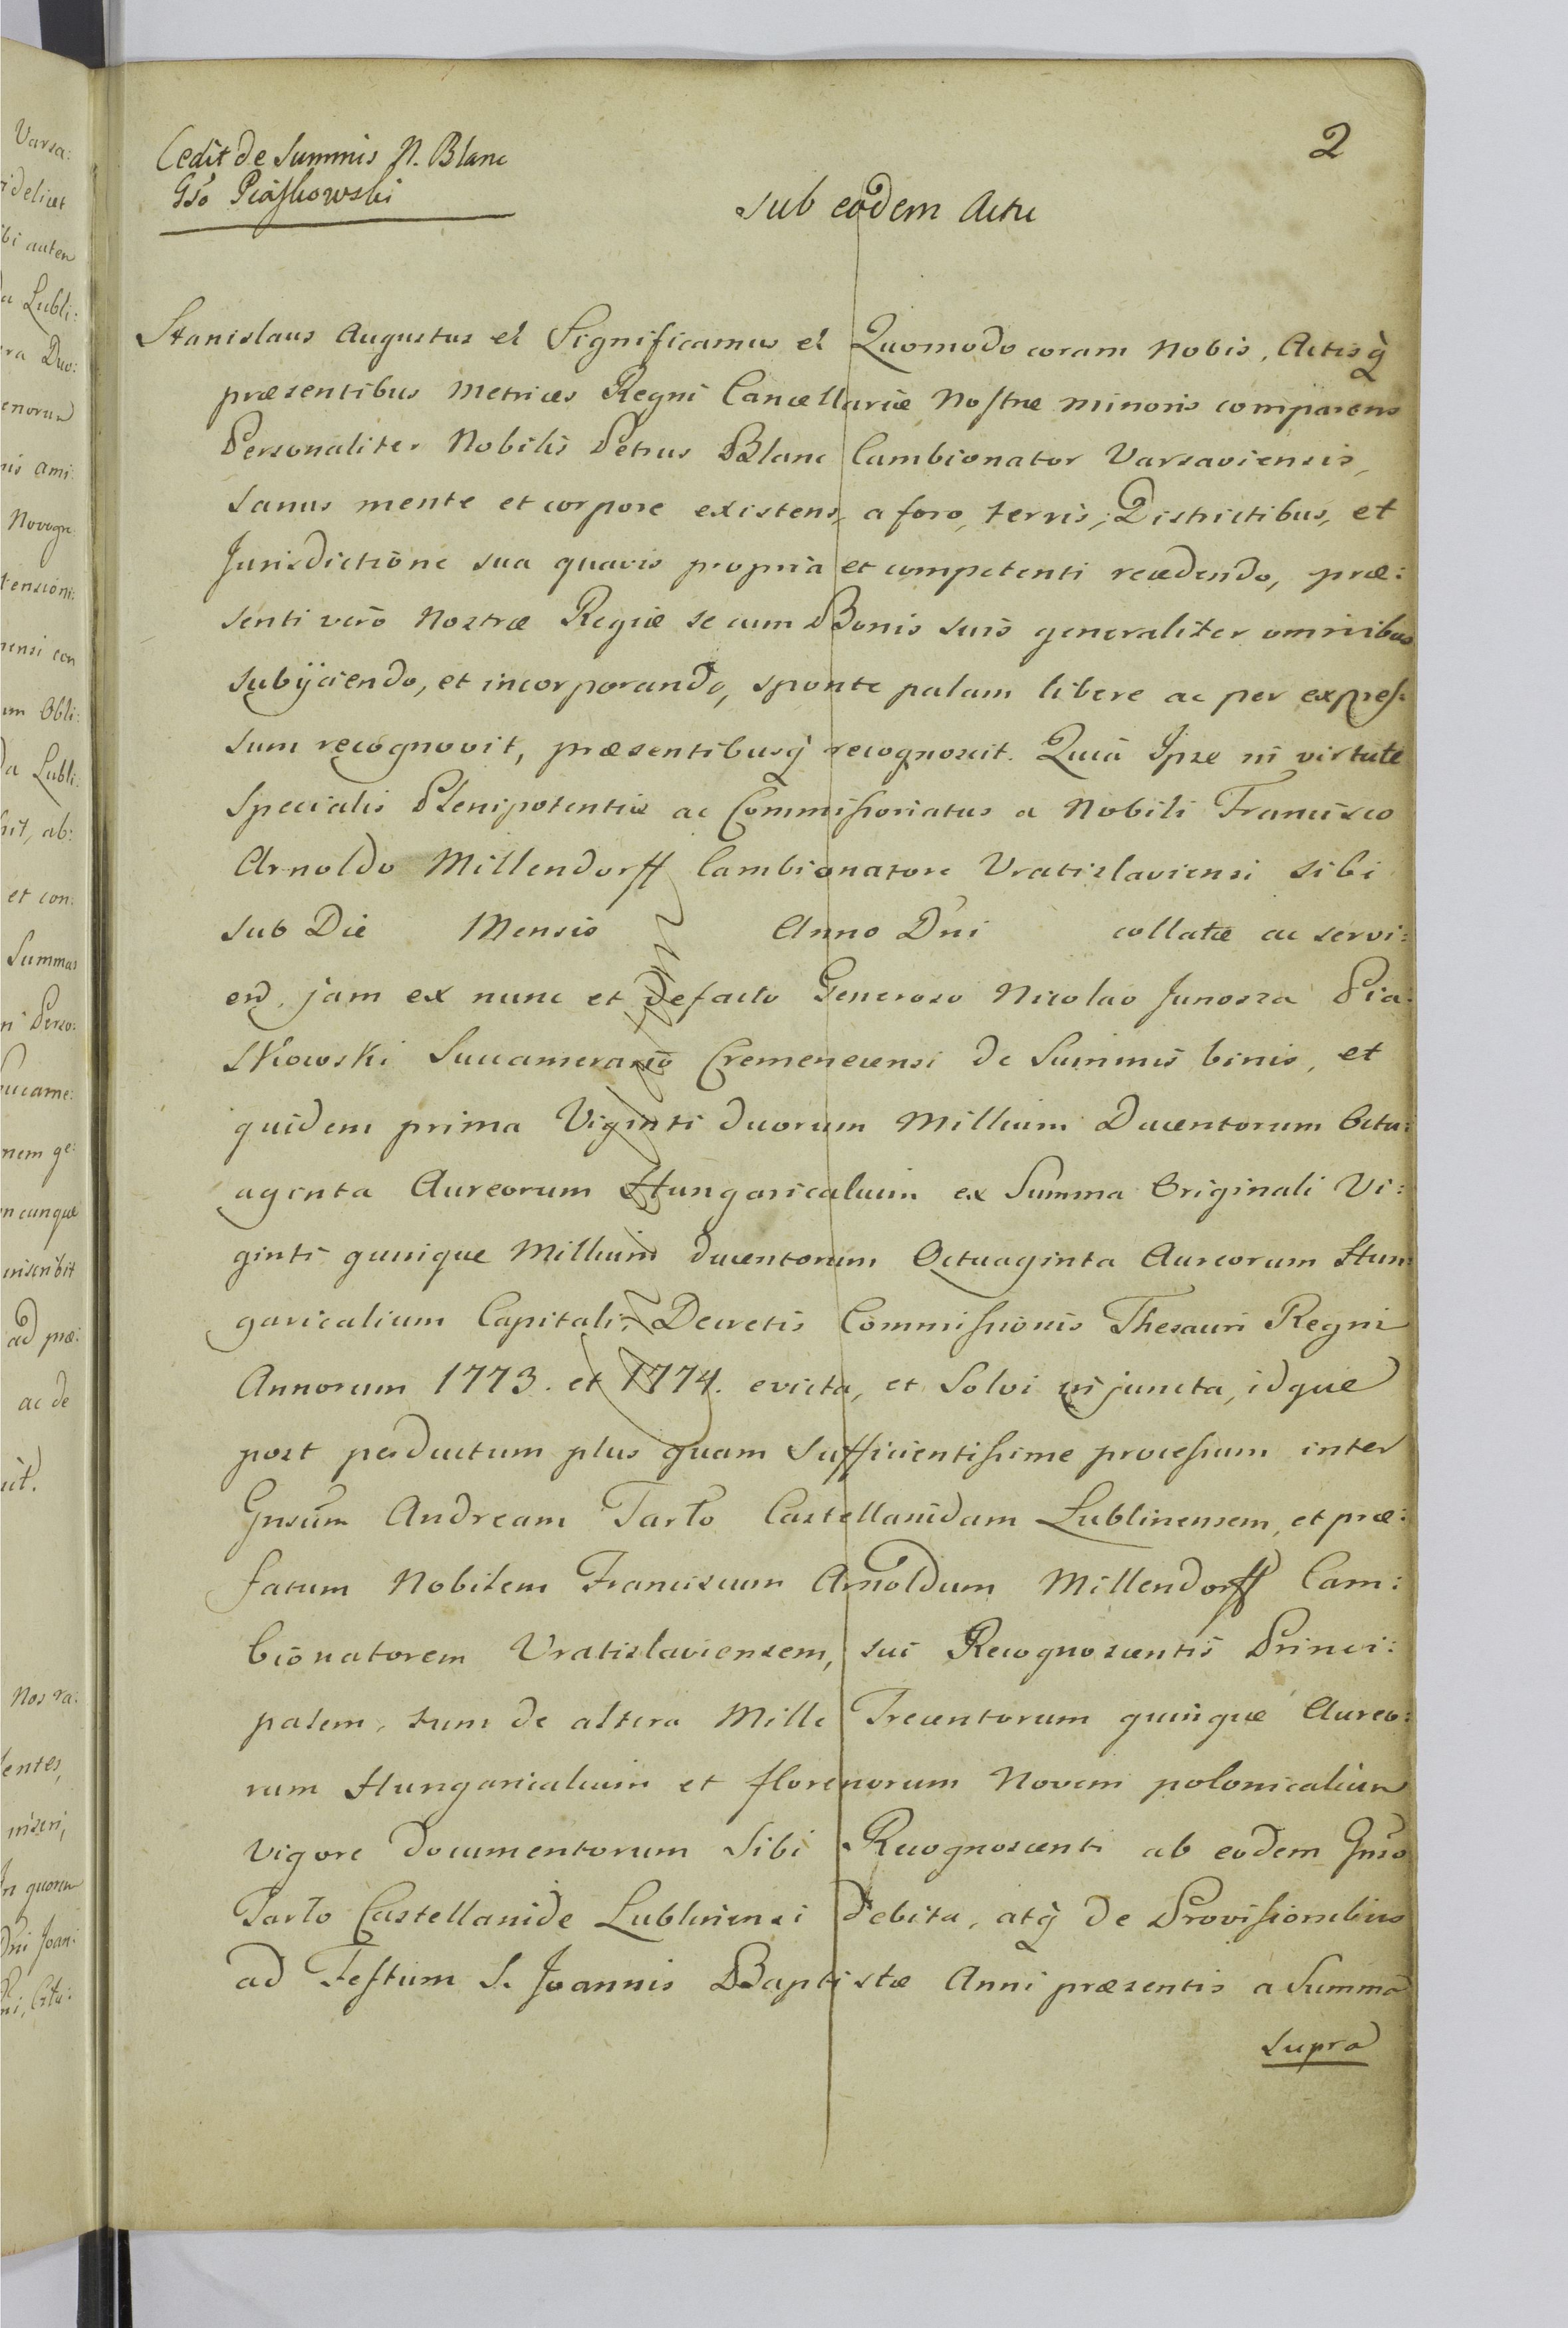 2
Cedit de Summis N. Blanc
Gso Piaskowski
sub eodem Actu
Stanislaus Augustus et Significamus et Quomodo coram Nobis, Actisq̃
præsentibus Metrices Regni Cancellariæ Nostræ minoris comparens
Personaliter Nobilis Petrus Blanc Cambionator Varsaviensis,
sanus mente et corpore existens, a foro, terris, Districtibus, et
Jurisdictione sua quavis propria et competenti recedendo, præ:
senti vero Nostræ Regiæ se cum Bonis suis generaliter omnibus
subijciendo, et incorporando, sponte palam libere ac per expres:
sum recognovit, præsentibusq̃ recognoscit. Quia Ipse in virtute
Specialis Plenipotentiæ ac Commissoriatus a Nobili Francisco
Arnoldo Millendorff Cambionatore Vratislaviensi sibi
sub Die Mensis Anno Dni collatæ ac servi:
en̄. jam ex nunc et defacto Generoso Nicolao Junosza Pia:
skowski Succamerario Cremenecensi de Summis binis, et
quidem prima Viginti duorum Millium Ducentorum Octu:
aginta Aureorum Hungaricalium ex Summa Originali Vi:
ginti quinque Millium ducentorum Octuaginta Aureorum Hun:
garicalium Capitali, Decretis Commissionis Thesauri Regni
Annorum 1773. et 1774. evicta, et Solvi injuncta, idque
post perductum plus quam sufficientissime processum inter
Gnsum Andream Tarło Castellanidam Lublinensem, et præ:
fatum Nobilem Franciscum Arnoldum Millendorff Cam:
bionatorem Vratislaviensem, sui Recognoscentis Princi:
palem, tum de altera Mille Trecentorum quinque Aureo:
rum Hungaricalium et florenorum Novem polonicalium
vigore documentorum Sibi Recognoscenti ab eodem Gnso
Tarło Castellanide Lublinensi debita, atq̃ de Provisionibus
ad Festum S. Joannis Baptistæ Anni præsentis a Summa
supra